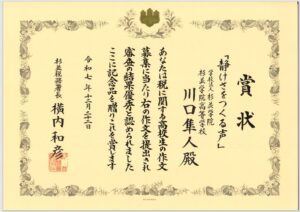 賞状
「静けさをつくる声」
学校法人杉並学院
杉並学院高等学校
川口隼人殿
あなたは税に関する高校生の作文
募集に当たり右の作文を提出され
審査の結果優秀と認められました
ここに記念品を贈りこれを賞します
令和七年十二月二十二日
杉並税務署長
横内和彦